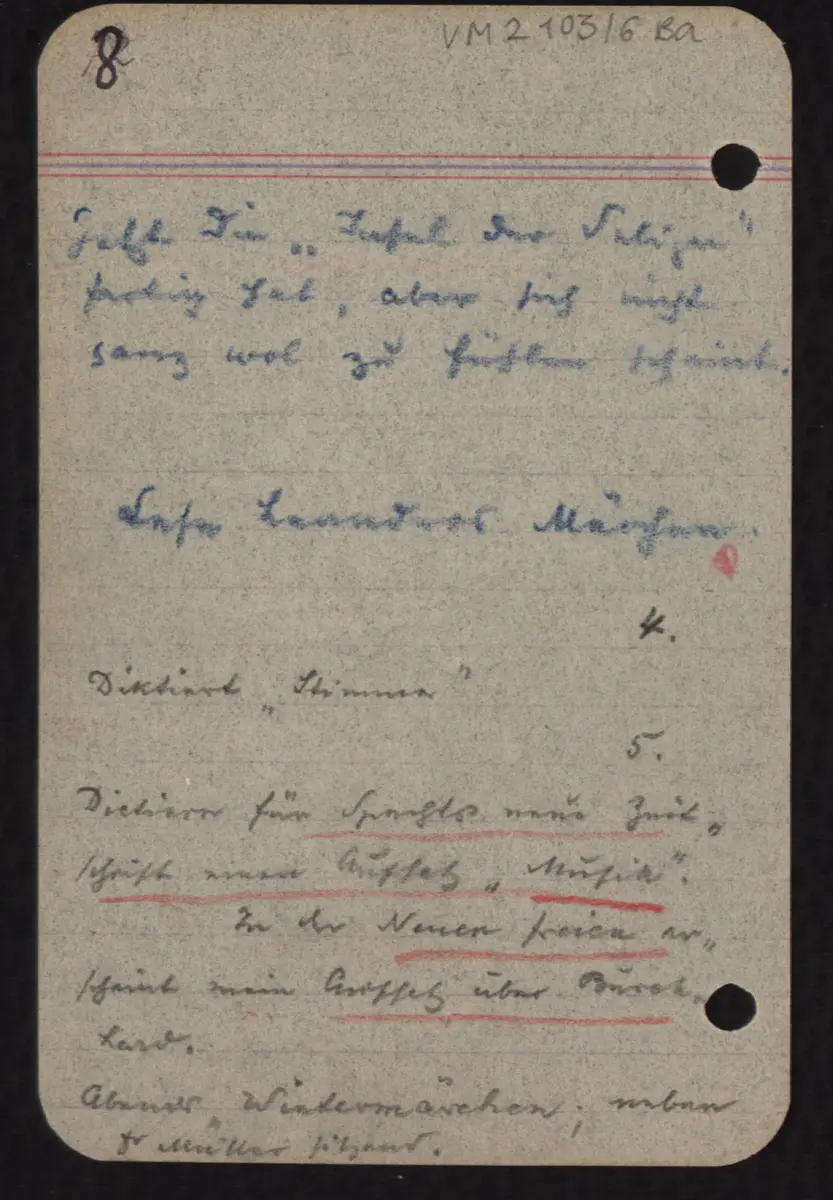 8
VM 2 103/6 Ba
jetzt die „Insel der Seligen"
fertig hat, aber sich nicht
ganz wol zu fühlen scheint.
Lese Leanders Märchen.
4.
Diktiert „Stimmen"
5.
Dictiere für Spechts neue Zeit„
schrift einen Aufsatz „Musik".
In der Neuen freien er„
scheint mein Aufsatz über Burck„
hard.
Abends „Wintermärchen; neben
Dr Müller sitzend.